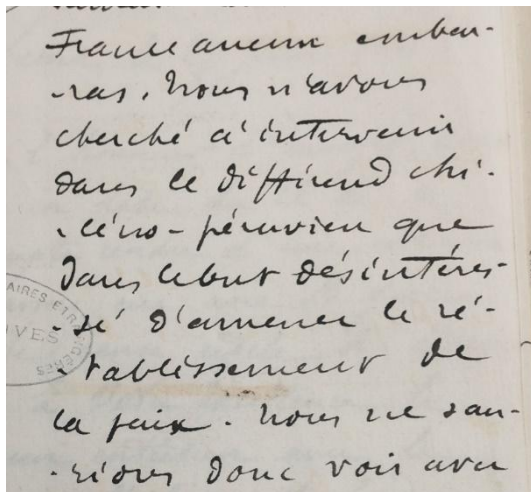 France aucun embar-
-ras. Nous n'avons
cherché à intervenir
dans le différend chi-
-léno-péruvien que
dans le but désintéres-
-sé d'amener le ré-
-tablissement de
la paix. Nous ne sau-
-rions donc voir avec
AIRES ETRANGÈRES